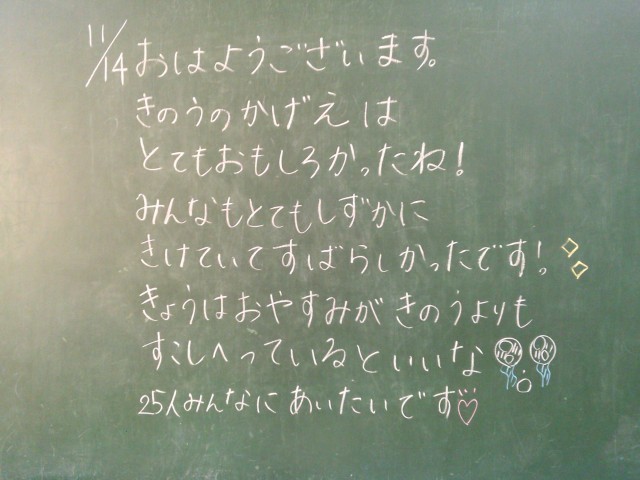 11/14 おはようございます。
きのうのかげえは
とてもおもしろかったね!
みんなもとてもしずかに
きけていてすばらしかったです!。
きょうはおやすみがきのうよりも
すこしへっているといいな
25人みんなにあいたいです♡